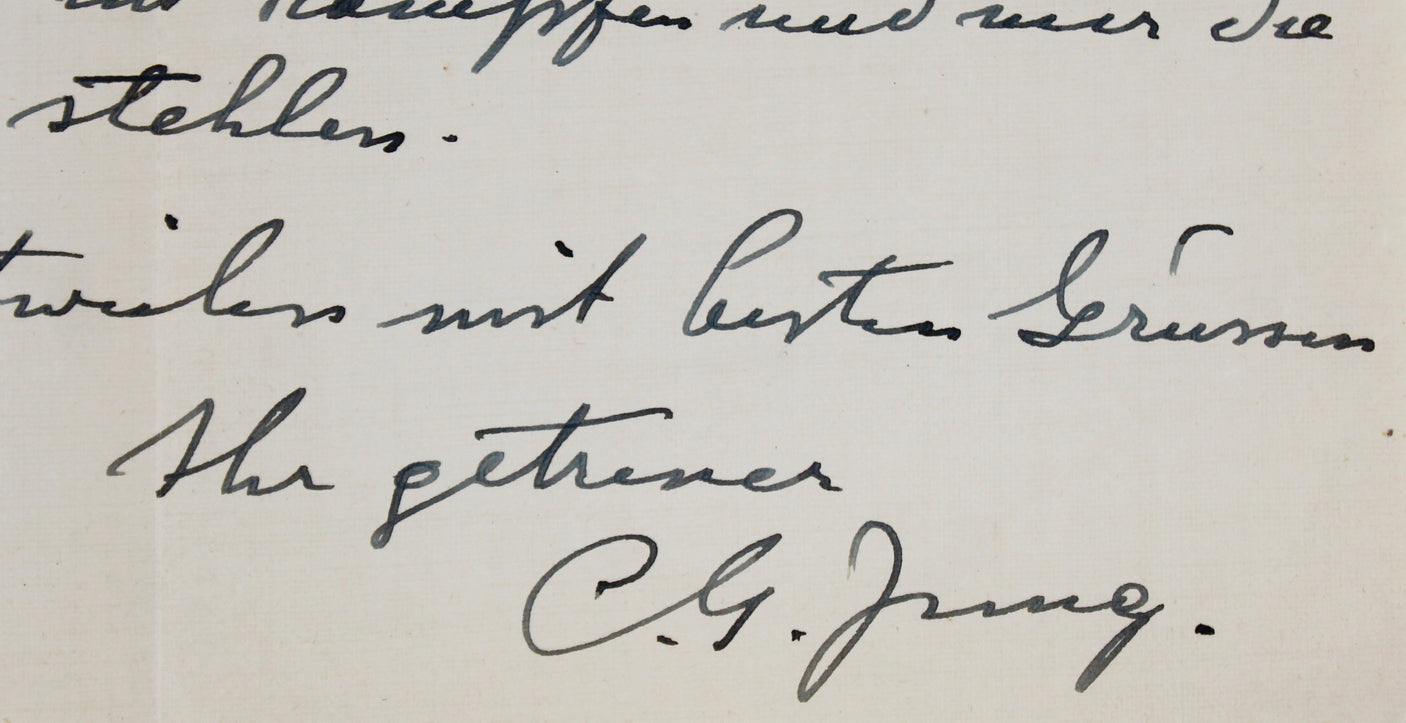 kämpfen und mir die
stehlen.
tweilen mit besten Grüssen
Ihr getreuer
C.G. Jung.